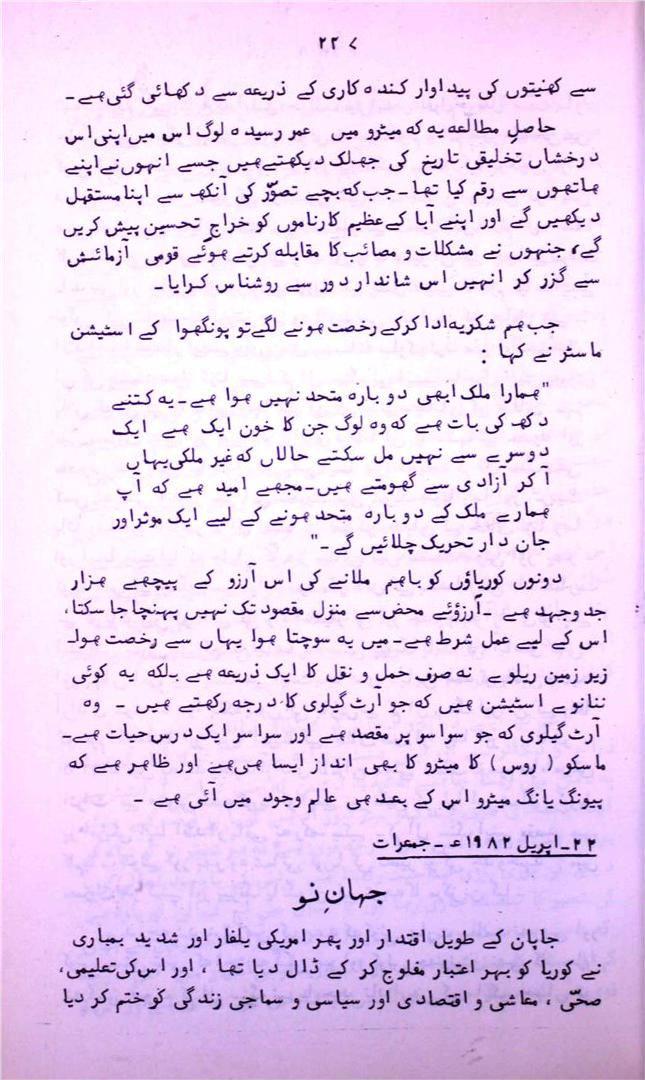 ۲۲۷
سے کھنیتوں کی پیداوار کندہ کاری کے ذریعہ سے دکھائی گئی ہے۔
حاصلِ مطالعہ یہ کہ میٹرو میں عمر رسیدہ لوگ اس میں اپنی اس
درخشاں تخلیقی تاریخ کی جھلک دیکھتے ہیں جسے انہوں نے اپنے
ہاتھوں سے رقم کیا تھا۔ جب کہ بچے تصوّر کی آنکھ سے اپنا مستقبل
دیکھیں گے اور اپنے آبا کے عظیم کارناموں کو خراجِ تحسین پیش کریں
گے، جنہوں نے مشکلات و مصائب کا مقابلہ کرتے ہوئے قومی آزمائش
سے گزر کر انہیں اس شاندار دور سے روشناس کرایا۔
جب ہم شکریہ ادا کر کے رخصت ہونے لگے تو پونگھوا کے اسٹیشن
ماسٹر نے کہا :
"ہمارا ملک ابھی دوبارہ متحد نہیں ہوا ہے۔ یہ کتنے
دکھ کی بات ہے کہ وہ لوگ جن کا خون ایک ہے ایک
دوسرے سے نہیں مل سکتے حالاں کہ غیر ملکی یہاں
آ کر آزادی سے گھومتے ہیں۔ مجھے امید ہے کہ آپ
ہمارے ملک کے دوبارہ متحد ہونے کے لیے ایک موثر اور
جان دار تحریک چلائیں گے۔"
دونوں کوریاؤں کو باہم ملانے کی اس آرزو کے پیچھے ہزار
جدوجہد ہے۔ آرزوئے محض سے منزل مقصود تک نہیں پہنچا جا سکتا،
اس کے لیے عمل شرط ہے۔ میں یہ سوچتا ہوا یہاں سے رخصت ہوا۔
زیر زمین ریلوے نہ صرف حمل و نقل کا ایک ذریعہ ہے بلکہ یہ کوئی
ننانوے اسٹیشن ہیں کہ جو آرٹ گیلری کا درجہ رکھتے ہیں۔ وہ
آرٹ گیلری کہ جو سراسر پر مقصد ہے اور سراسر ایک درس حیات ہے۔
ماسکو (روس) کا میٹرو کا بھی انداز ایسا ہی ہے اور ظاہر ہے کہ
پیونگ یانگ میٹرو اس کے بعد ہی عالم وجود میں آئی ہے۔
۲۲۔ اپریل ۱۹۸۲ء۔ جمعرات
جہانِ نو
جاپان کے طویل اقتدار اور پھر امریکی یلغار اور شدید بمباری
نے کوریا کو بہر اعتبار مفلوج کر کے ڈال دیا تھا، اور اس کی تعلیمی،
صحّی، معاشی و اقتصادی اور سیاسی و سماجی زندگی کو ختم کر دیا